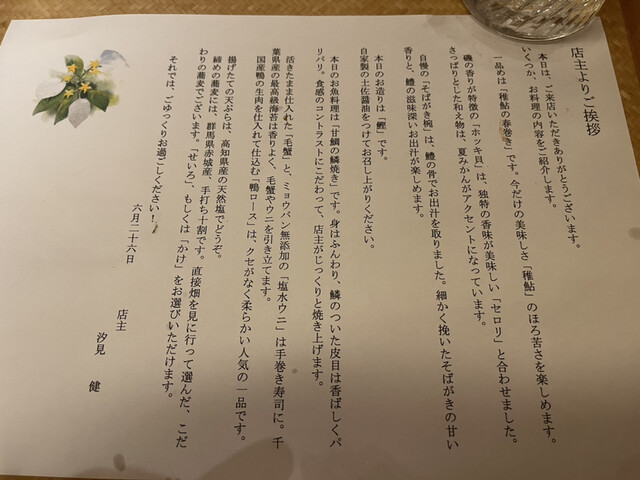 店主よりご挨拶
本日は、ご来店いただきありがとうございます。
いくつか、お料理の内容をご紹介します。
一品めは「稚鮎の春巻き」です。今だけの美味しさ「稚鮎」のほろ苦さを楽しめます。
磯の香りが特徴の「ホッキ貝」は、独特の香味が美味しい「セロリ」と合わせました。
さっぱりとした和え物は、夏みかんがアクセントになっています。
自慢の「そばがき椀」は、鱧の骨でお出汁を取りました。細かく挽いたそばがきの甘い
香りと、鱧の滋味深いお出汁が楽しめます。
本日のお造りは「鰹」です。
自家製の土佐醤油をつけてお召し上がりください。
本日のお魚料理は「甘鯛の鱗焼き」です。身はふんわり、鱗のついた皮目は香ばしくパ
リパリ。食感のコントラストにこだわって、店主がじっくりと焼き上げます。
活きたまま仕入れた「毛蟹」と、ミョウバン無添加の「塩水ウニ」は手巻き寿司に。千
葉県産の最高級海苔は香りよく、毛蟹やウニを引き立てます。
国産鴨の生肉を仕入れて仕込む「鴨ロース」は、クセがなく柔らかい人気の一品です。
揚げたての天ぷらは、高知県産の天然塩でどうぞ。
締めの蕎麦には、群馬県赤城産、手打ち十割です。直接畑を見に行って選んだ、こだ
わりの蕎麦でございます。「せいろ」、もしくは「かけ」をお選びいただけます。
それでは、ごゆっくりお過ごしください！
六月二十六日
店主
汐見　健